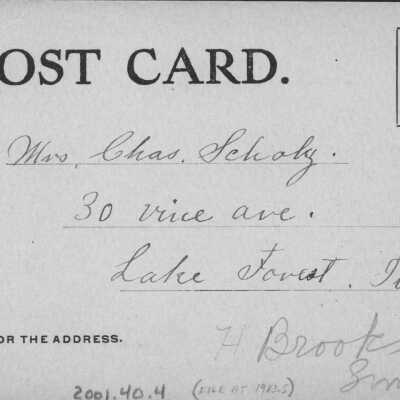 OST CARD.
Mrs. Chas. Scholz.
30 vine ave.
Lake Forest.
OR THE ADDRESS.
H Brooks
2001.40.4